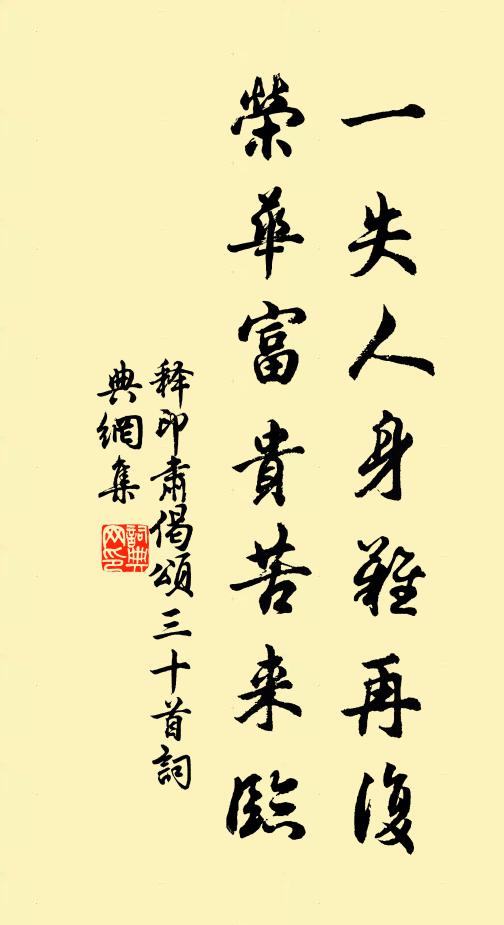 一失人身難再復
榮華富貴苦来臨
释印肃偈頌三十首詞
典網集
詞典网印